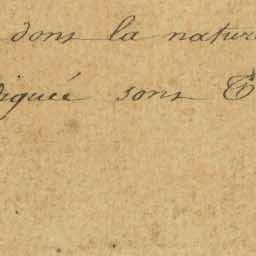 dons la natur
diquée sons